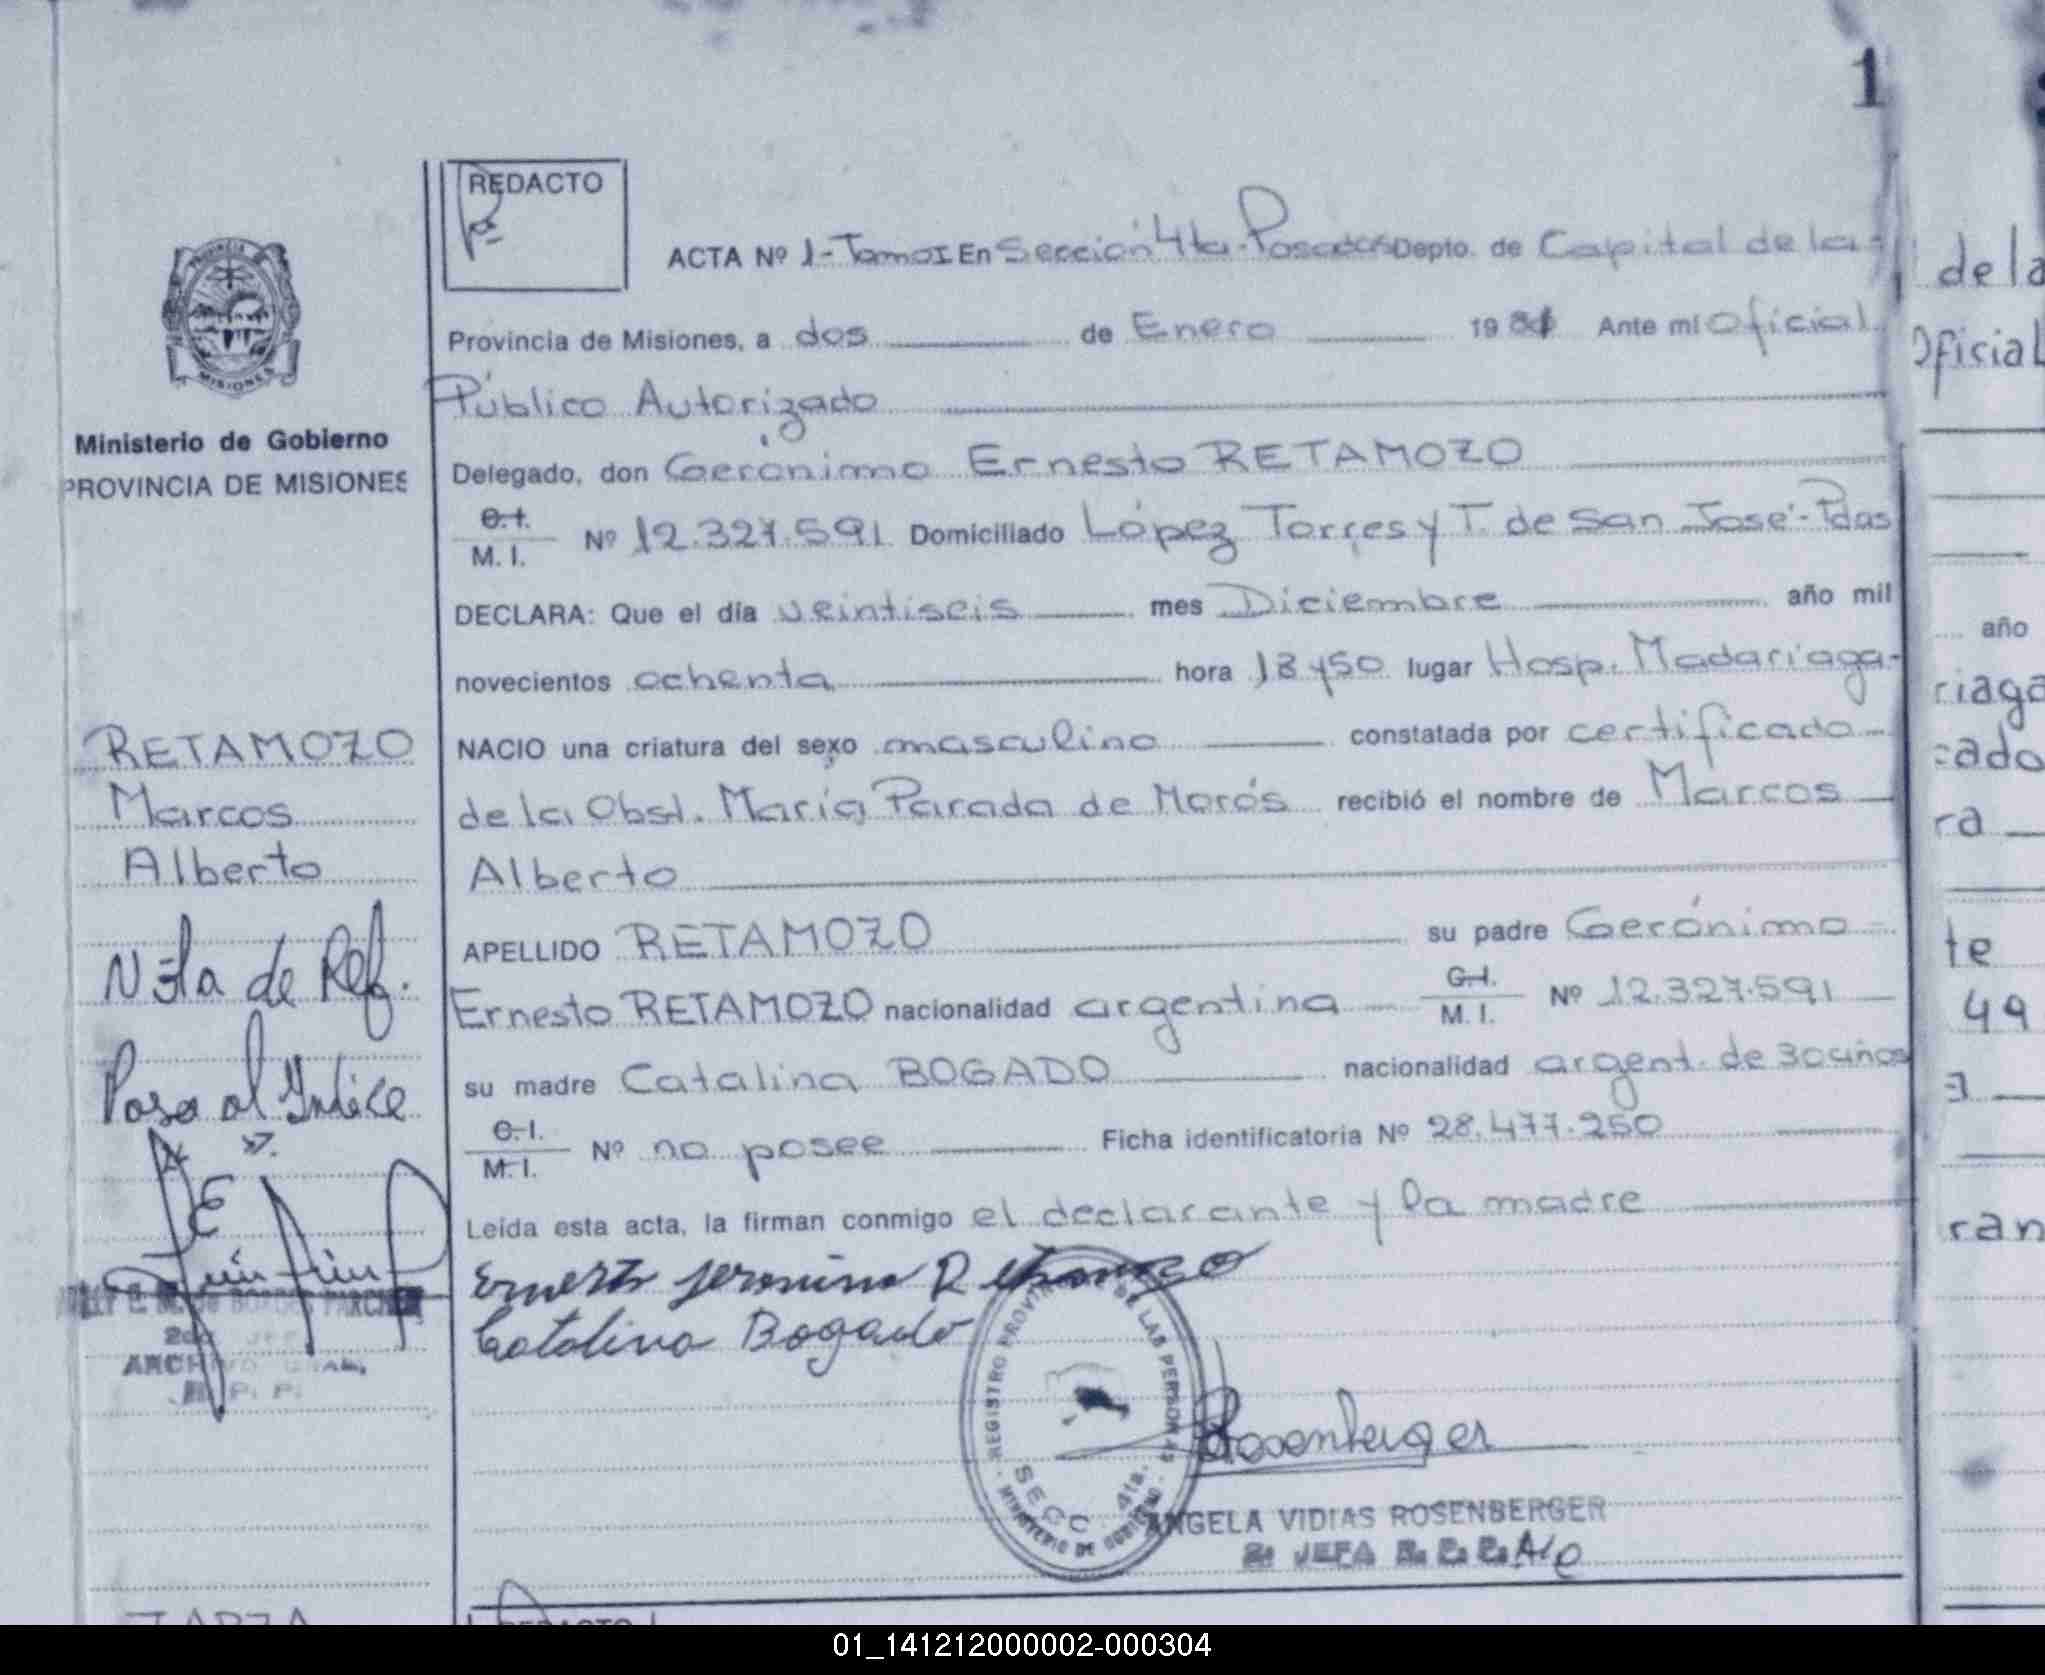 1
REDACTO
ACTA Nº 1- Tomo I En Sección 4ta. Posadas Depto. de Capital de la
Provincia de Misiones, a dos de Enero 1981 Ante mí Oficial
Público Autorizado
Delegado, don Gerónimo Ernesto RETAMOZO
C.I.
M. I. Nº 12.327.591 Domiciliado López Torres y T. de San José - Pdas
DECLARA: Que el día veintiseis mes Diciembre año mil
novecientos ochenta hora 18 y 50 lugar Hosp. Madariaga-
NACIO una criatura del sexo masculino constatada por certificado
de la Obst. María Parada de Morós recibió el nombre de Marcos
Alberto
APELLIDO RETAMOZO su padre Gerónimo
Ernesto RETAMOZO nacionalidad argentina C.I.
M. I. Nº 12.327.591
su madre Catalina BOGADO nacionalidad argent. de 30 años
C.I.
M. I. Nº no posee Ficha identificatoria Nº 28.477.250
Leída esta acta, la firman conmigo el declarante y la madre
Ernesto Jeronimo Retamozo
Catalina Bogado
REGISTRO PROVINCIAL DE LAS PERSONAS
SECC. 4ta.
MINISTERIO DE GOBIERNO
Rosenberger
ANGELA VIDIAS ROSENBERGER
2ª JEFA
REDACTO
PROVINCIA DE
MISIONES
Ministerio de Gobierno
PROVINCIA DE MISIONES
RETAMOZO
Marcos
Alberto
Nota de Ref.
Pasa al Indice
ARCHIVO GRAL.
R. P. P.
de la
Oficial
año
riaga
cado
ra
te
49
ran
01_141212000002-000304